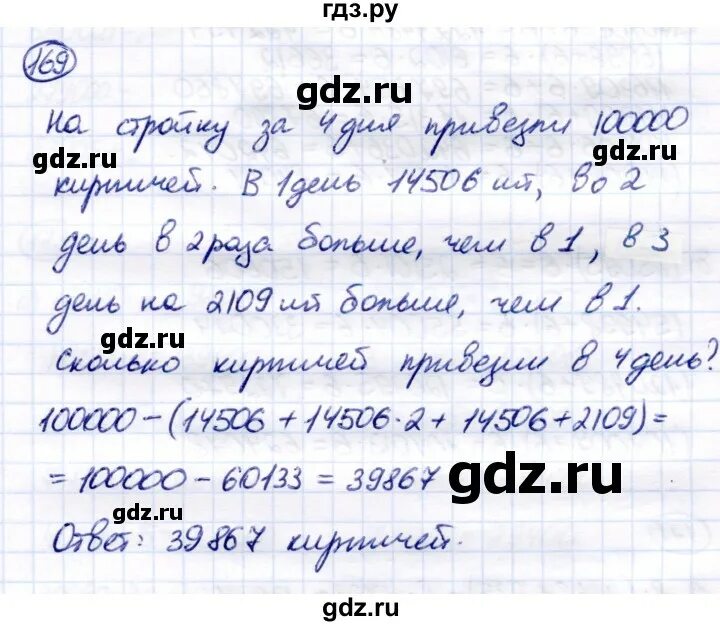 гдз.ру
169
gdz.ru
На стройку за 4 дня привезли 100000
gdz.ru
кирпичей. В 1 день 14506 шт, во 2
день в 2 раза больше, чем в 1, в 3
день на 2109 шт больше, чем в 1.
gdz.ru
Сколько кирпичей привезли в 4 день?
100000-(14506+14506·2+14506+2109)=
=100000-60133=39867
gdz.ru
gdz.ru
Ответ: 39867 кирпичей.
gdz.ru